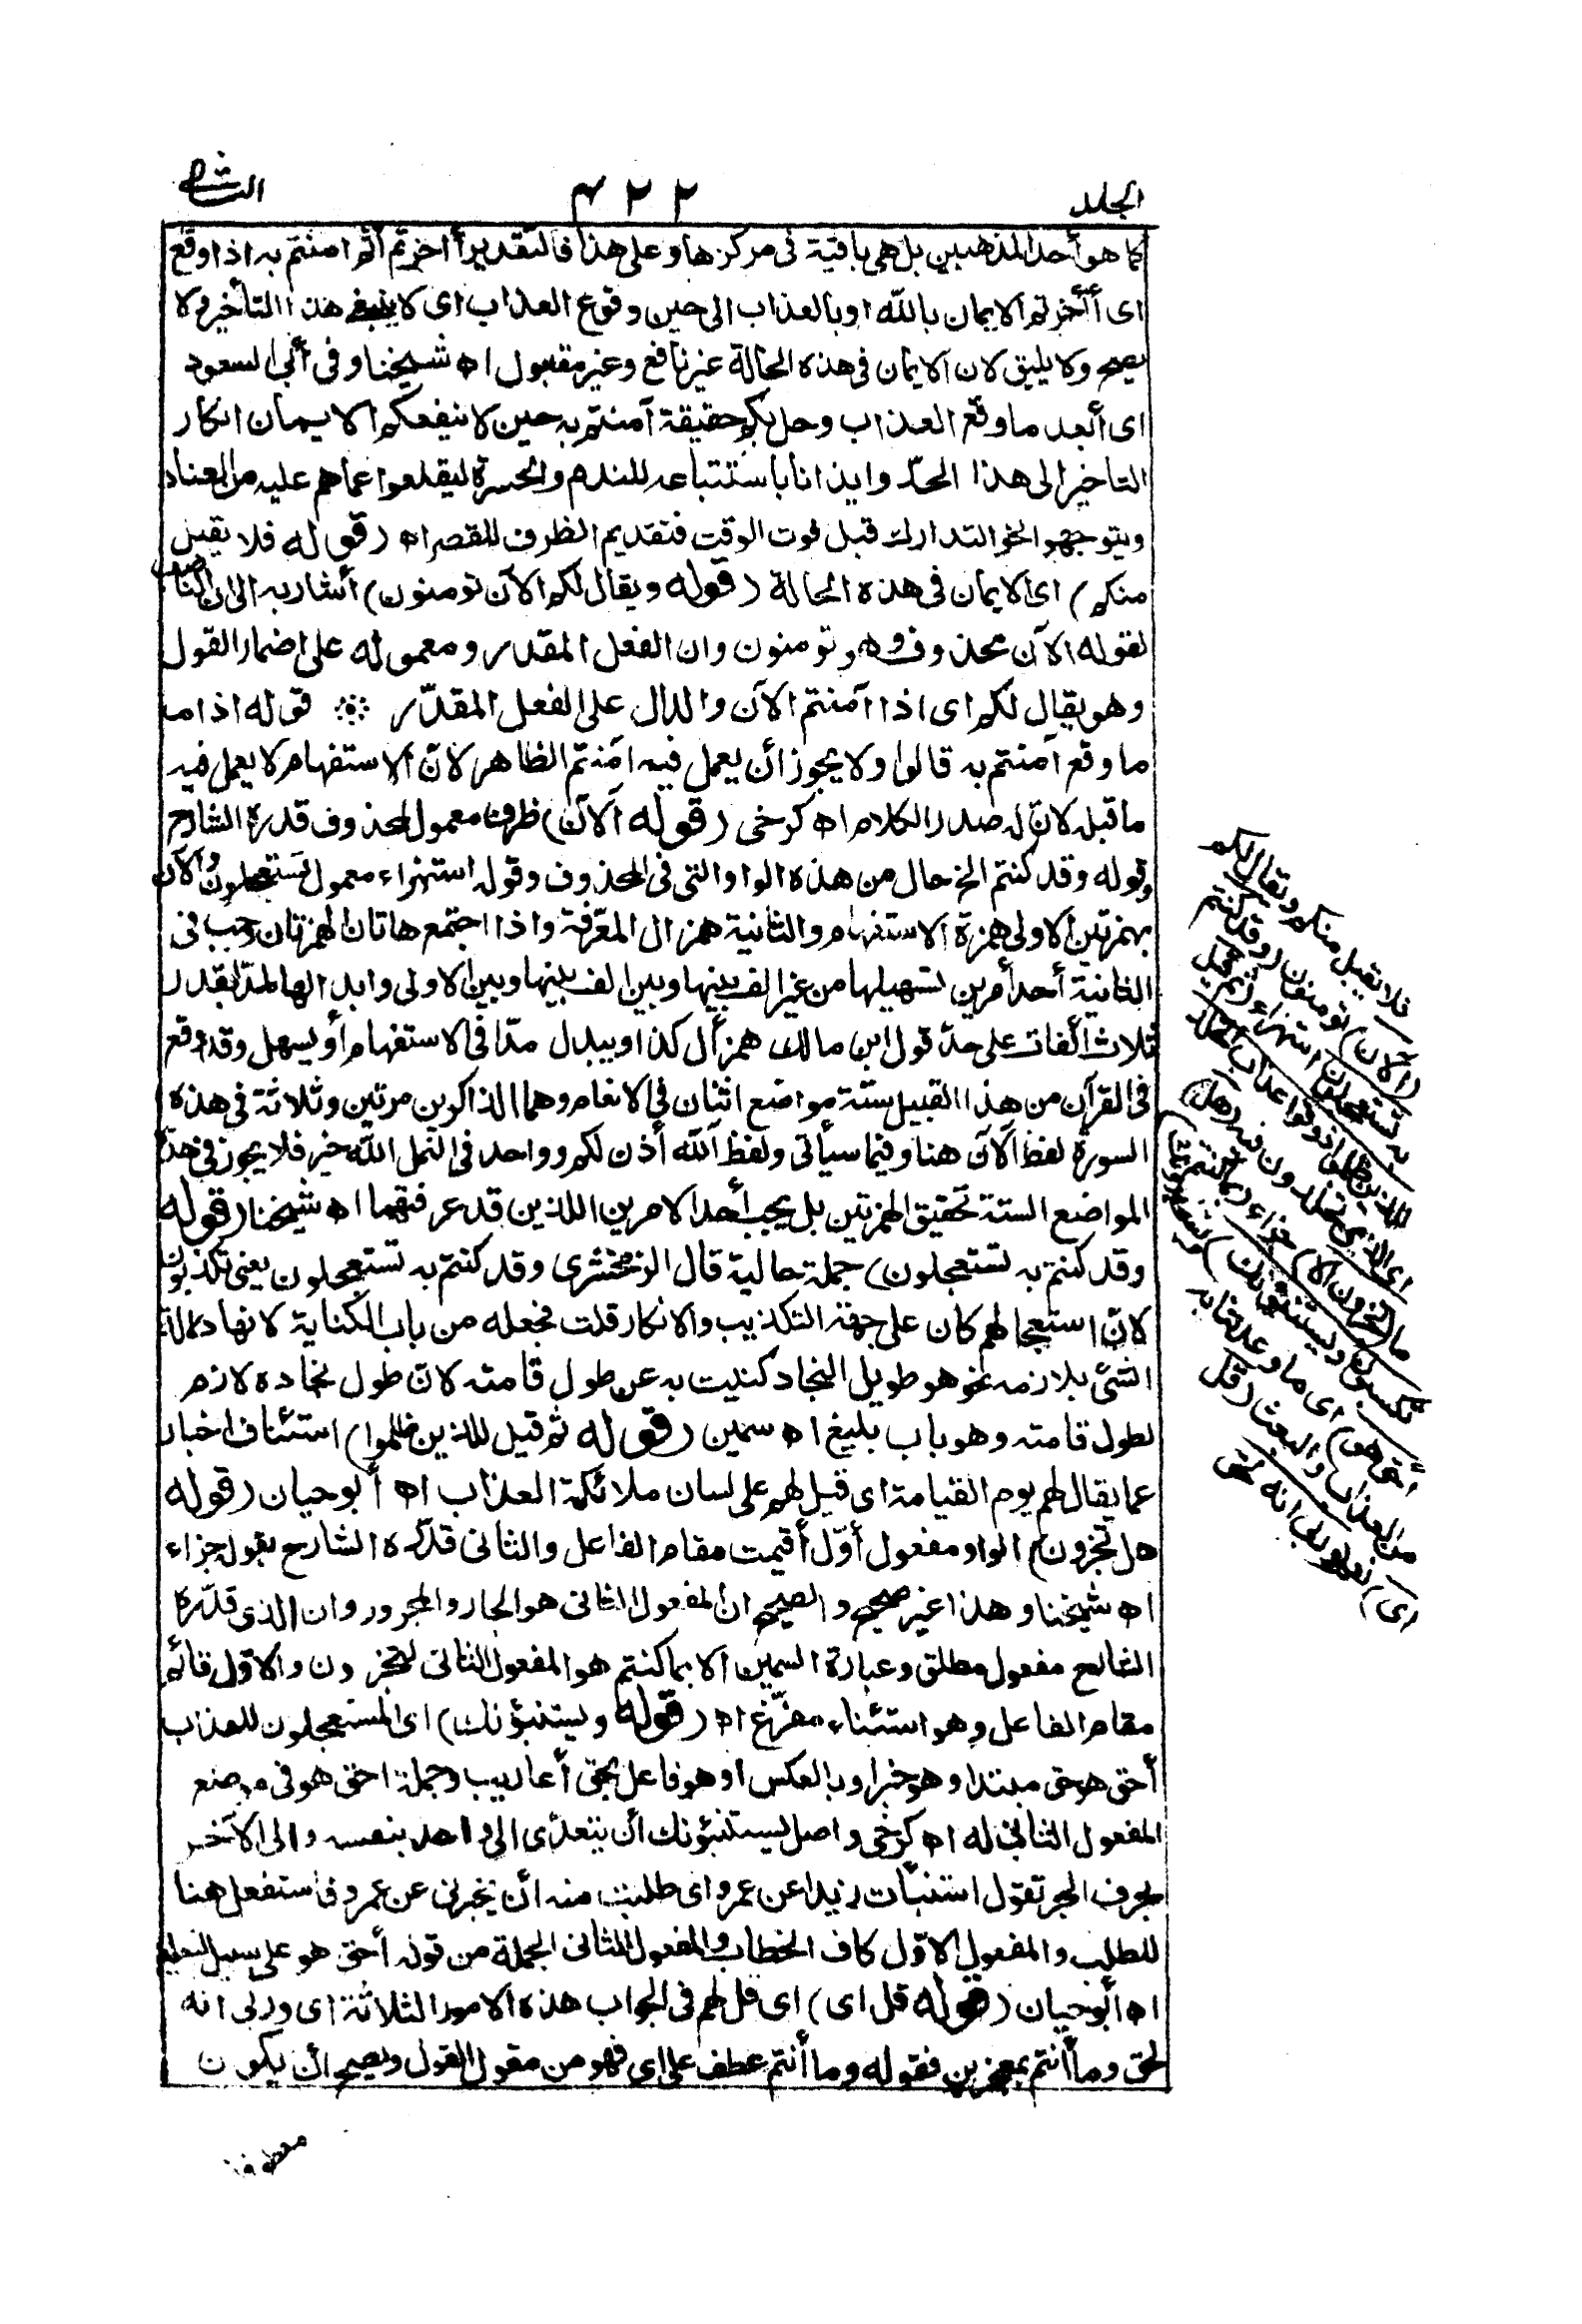 الجلد ٤٢٢ الثانى
كما هو أحد المذهبين بل هى باقية فى مركزها وعلى هذا فالتقدير أأخرتم ثم امنتم به اذا وقع
اى أأخرتم الايمان بالله او بالعذاب الى حين وقوع العذاب اى لا ينبغى هذا التأخير ولا
يصح ولا يليق لان الايمان فى هذه الحالة غير نافع وغير مقبول اه شيخنا وفى أبى السعود
اى أبعد ما وقع العذاب وحل بكم حقيقة آمنتم به حين لا ينفعكم الايمان انكار
التاخير الى هذا الحدّ وايذانا باستتباعه للندم والحسرة ليقلعوا عماهم عليه من العناد
ويتوجهوا نحو التدارك قبل فوت الوقت فتقديم الظرف للقصر اه (قوله فلا يقبل
منكم) اى الايمان فى هذه الحالة (قوله ويقال لكم الآن تومنون) أشار به الى ان الناصب
لقوله الآن محذوف وهو تومنون وان الفعل المقدر ومعموله على اضمار القول
وهو يقال لكم اى اذا آمنتم الآن والدال على الفعل المقدّر ۞ قوله اذا ما
ما وقع آمنتم به قالوا ولا يجوز أن يعمل فيه امنتم الظاهر لانّ الاستفهام لا يعمل فيه
ما قبله لانّ له صدر الكلام اه كرخى (قوله آلآن) ظرف معمول لمحذوف قدره الشارح
وقوله وقد كنتم الخ حال من هذه الواو التى فى المحذوف وقوله استهزاء معمول لتستعجلون والآن
بهمزتين الاولى همزة الاستفهام والثانية همز ال المعرّفة واذا اجتمع هاتان الهمزتان وجب فى
الثانية أحد أمرين تسهيلها من غير الف بينها وبين الف بينها وبين الاولى وابدالها بمدّ بقدر
ثلاث ألفات على حدّ قول ابن مالك همز أل كذا ويبدل مدّا فى الاستفهام أو يسهل وقد وقع
فى القرآن من هذا القبيل ستة مواضع اثنان فى الانعام وهما الذاكرين مرتين وثلاثة فى هذه
السورة لفظ آلآن هنا وفيما سيأتى ولفظ آلله أذن لكم وواحد فى النمل آلله خير فلا يجوز فى هذه
المواضع الستة تحقيق الهمزتين بل يجب أحد الامرين اللذين قد عرفتهما اه شيخنا (قوله
وقد كنتم به تستعجلون) جملة حالية قال الزمخشرى وقد كنتم به تستعجلون يعنى تكذبون
لانّ استعجالهم كان على جهة التكذيب والانكار قلت فجعله من باب الكناية لانها دلالة
الشئ بلازمه نحو هو طويل النجاد كنيت به عن طول قامته لانّ طول نجاده لازم
لطول قامته وهو باب بليغ اه سمين (قوله ثم قيل للذين ظلموا) استئناف اخبار
عما يقال لهم يوم القيامة اى قيل لهم على لسان ملائكة العذاب اه أبو حيان (قوله
هل تجزون) الواو مفعول أوّل أقيمت مقام الفاعل والثانى قدّره الشارح بقوله جزاء
اه شيخنا وهذا غير صحيح والصحيح ان المفعول الثانى هو الجار والمجرور وان الذى قدّره
الشارح مفعول مطلق وعبارة السمين الا بما كنتم هو المفعول الثانى لتجزون والاوّل قائم
مقام الفاعل وهو استثناء مفرّغ اه (قوله ويستنبؤنك) اى المستعجلون للعذاب
أحق هو حق مبتدا وهو خبر او بالعكس او هو فاعل بحق أعاريب وجملة احق هو فى موضع
المفعول الثانى له اه كرخى واصل يستنبؤنك أن يتعدّى الى واحد بنفسه والى الآخر
بحرف الجر تقول استنبأت زيدا عن عمرو اى طلبت منه أن يخبرنى عن عمرو فاستفعل هنا
للطلب والمفعول الاوّل كاف الخطاب والمفعول الثانى الجملة من قوله أحق هو على سبيل التعليق
اه أبو حيان (قوله قل اى) اى قل لهم فى الجواب هذه الامور الثلاثة اى وربى انه
لحق وما أنتم بمعجزين فقوله وما أنتم عطف على اى فهو من مقول القول ويصح أن يكون
فلا يقبل منكم ويقال لكم
(آلآن) تومنون (وقد كنتم
به تستعجلون) استهزاء (ثم قيل
للذين ظلموا ذوقوا عذاب الخلد)
اى الذى تخلدون فيه (هل)
ما (تجزون الا) جزاء (بما كنتم
تكسبون ويستنبؤنك) يستخبرونك
أحق هو) اى ما وعدتنا به
من العذاب والبعث (قل
اى) نعم (وربى انه لحق
معطوفا